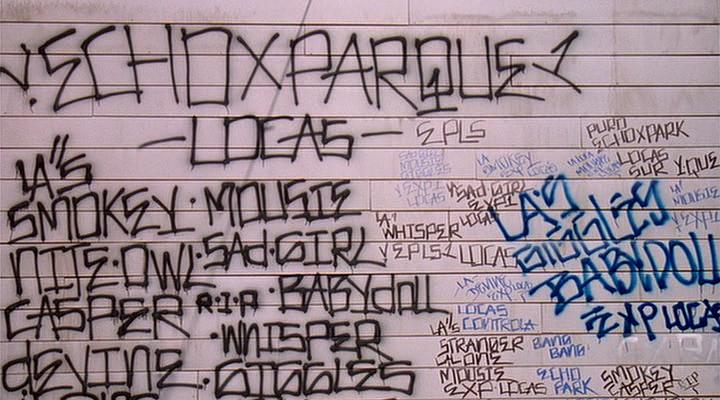 V.ECHOXPARQUE1
-LOCAS-
EPLS
PURO
ECHOXPARK
LOCAS
SUR Y QUE
LA"S
SMOKEY. MOUSIE
NITE.OWL.SAd.GIRL
CASPER R.I.P. BABYdOLL
.WHISPER
dEVINE. GIGGLES
SAd.GIRL
EXP1
LOCAS
LA"
WHISPER
VEPLS1 LOCAS
LA'S
GIGGLES
BABYDOLL
EXP LOCAS
LOCAS
CONTROLA
LA'S
STRANGER
ALONE
MOUSIE
EXP.LOCAS
BANG
BANG
ECHO
PARK
SMOKEY
CASPER RIP